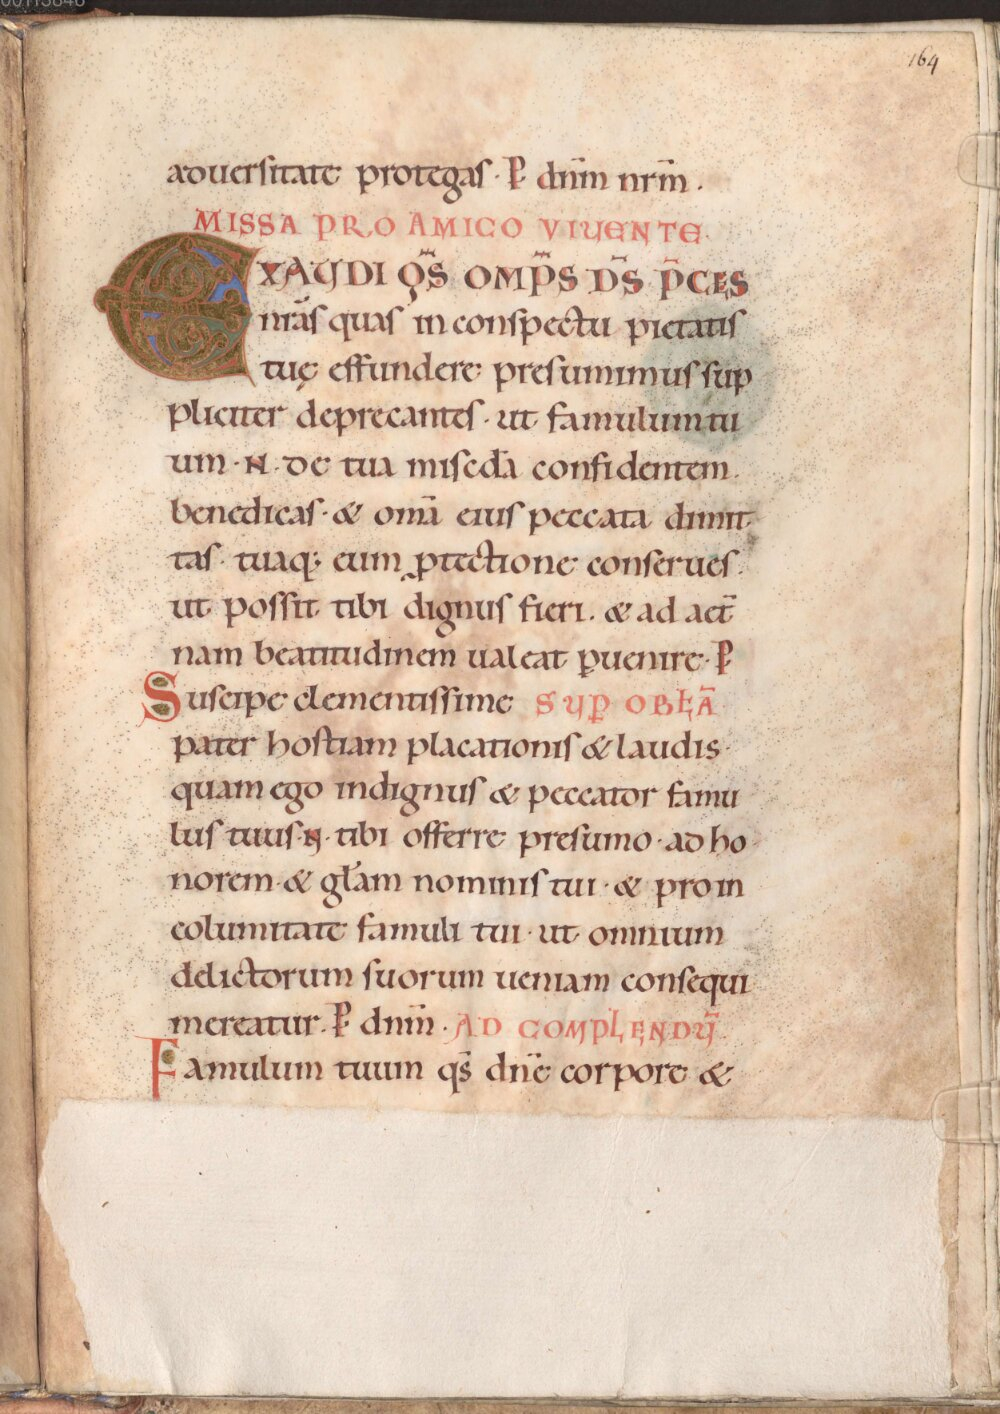 164
aduersitate protegas · P̄ dn̄m nr̄m .
MISSA PRO AMICO VIUENTE
EXAUDI QS̄ OMPS̄ DS̄ P̄CES
nrās quas in conspectu pietatis
tuę effundere presumimus sup
pliciter deprecantes · ut famulum tu
um · N · de tua misedā confidentem .
benedicas · & omā eius peccata dimit
tas · tuaq; eum ꝓtectione conserues .
ut possit tibi dignus fieri . & ad aet̄
nam beatitudinem ualeat ꝑuenire · P̄
Suscipe clementissime SUP̄ OBLĀ
pater hostiam placationis & laudis ·
quam ego indignus & peccator famu
lus tuus · N · tibi offerre presumo · ad ho
norem · & glam̄ nominis tui · & pro in
columitate famuli tui · ut omnium
delictorum suorum ueniam consequi
mereatur . P̄ dn̄m · AD COMPLENDŪ
Famulum tuum qs̄ dn̄e corpore &